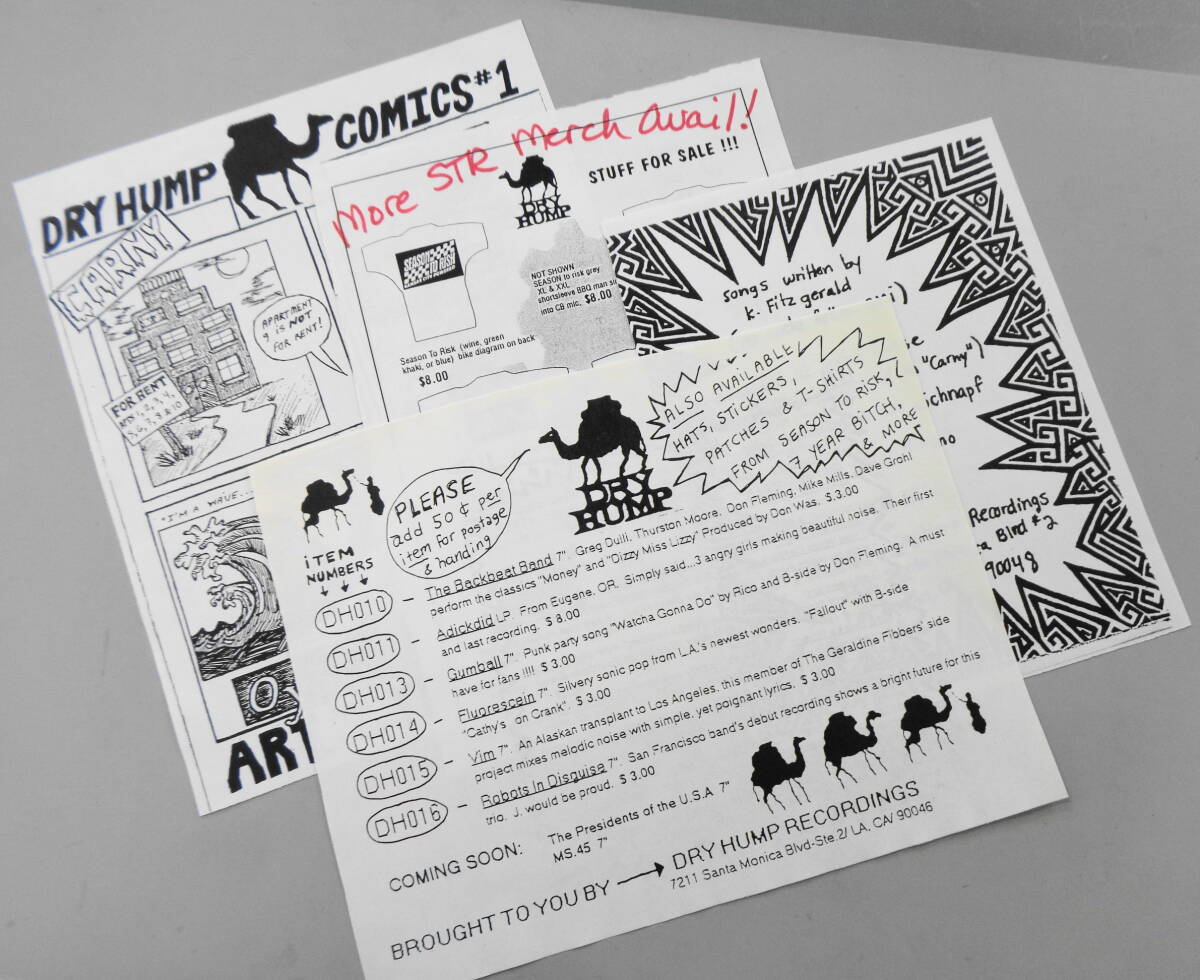 DRY HUMP COMICS #1
CARNY
APARTMENT
9 IS NOT
FOR RENT!
FOR RENT
APTS 1, 2, 3, 4,
5, 6, 7, 8 & 10
"I'M A WAVE...
ART
More STR Merch Avail!
STUFF FOR SALE !!!
DRY
HUMP
SEASON
TO RISK
NOT SHOWN
SEASON to risk grey
XL & XXL
shortsleeve BBQ man
into CB mic, $8.00
Season To Risk (wine, green
khaki, or blue) bike diagram on back
$8.00
songs written by
K. Fitzgerald
"Carny")
Recordings
#2
90048
PLEASE
add 50 ¢ per
item for postage
& handing
DRY
HUMP
ALSO AVAILABLE
HATS, STICKERS,
PATCHES & T-SHIRTS
FROM SEASON TO RISK,
7 YEAR BITCH,
& MORE
iTEM
NUMBERS
DH010 – The Backbeat Band 7". Greg Dulli, Thurston Moore, Don Fleming, Mike Mills, Dave Grohl
perform the classics "Money" and "Dizzy Miss Lizzy" Produced by Don Was. $ 3.00
DH011 – Adickdid LP. From Eugene, OR. Simply said...3 angry girls making beautiful noise. Their first
and last recording. $ 8.00
DH013 – Gumball 7". Punk party song "Watcha Gonna Do" by Rico and B-side by Don Fleming. A must
have for fans !!!! $ 3.00
DH014 – Fluorescein 7". Silvery sonic pop from L.A.'s newest wonders. "Fallout" with B-side
"Cathy's on Crank". $ 3.00
DH015 – Vim 7". An Alaskan transplant to Los Angeles, this member of The Geraldine Fibbers' side
project mixes melodic noise with simple, yet poignant lyrics. $ 3.00
DH016 – Robots In Disguise 7". San Francisco band's debut recording shows a bright future for this
trio. J. would be proud. $ 3.00
COMING SOON: The Presidents of the U.S.A 7"
MS.45 7"
BROUGHT TO YOU BY → DRY HUMP RECORDINGS
7211 Santa Monica Blvd-Ste.2/ LA, CA/ 90046